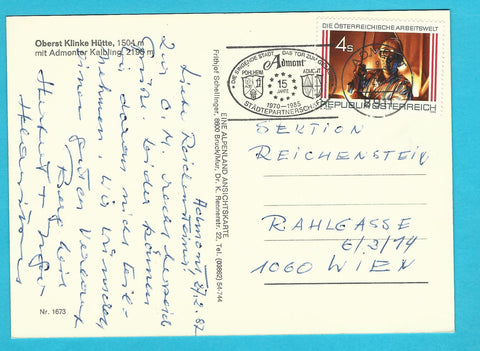 Oberst Klinke Hütte, 1504 m
mit Admonter Kaibling, 2196 m
Admont, 27.2.87
Liebe Reichensteiner!
Zur O. M. recht herzlich
Grüße. Leider können
wir daran nicht teil-
nehmen. Wir wünschen
einen guten Verlauf
Berg heil
Herbert +
Nr. 1673
EINE ALPENLAND ANSICHTSKARTE
Frithjof Schellinger, 8600 Bruck/Mur, Dr. K. Rennerstr. 22, Tel. (03862) 54-744
DIE SINGENDE STADT
DAS TOR ZUM
Admont
PÖHLHEIM
ADMONT
15
JAHRE
1970 – 1985
STÄDTEPARTNERSCHAFT
DIE ÖSTERREICHISCHE ARBEITSWELT
4s
REPUBLIK ÖSTERREICH
SEKTION
REICHENSTEIN
RAHLGASSE
6/3/14
1060 WIEN